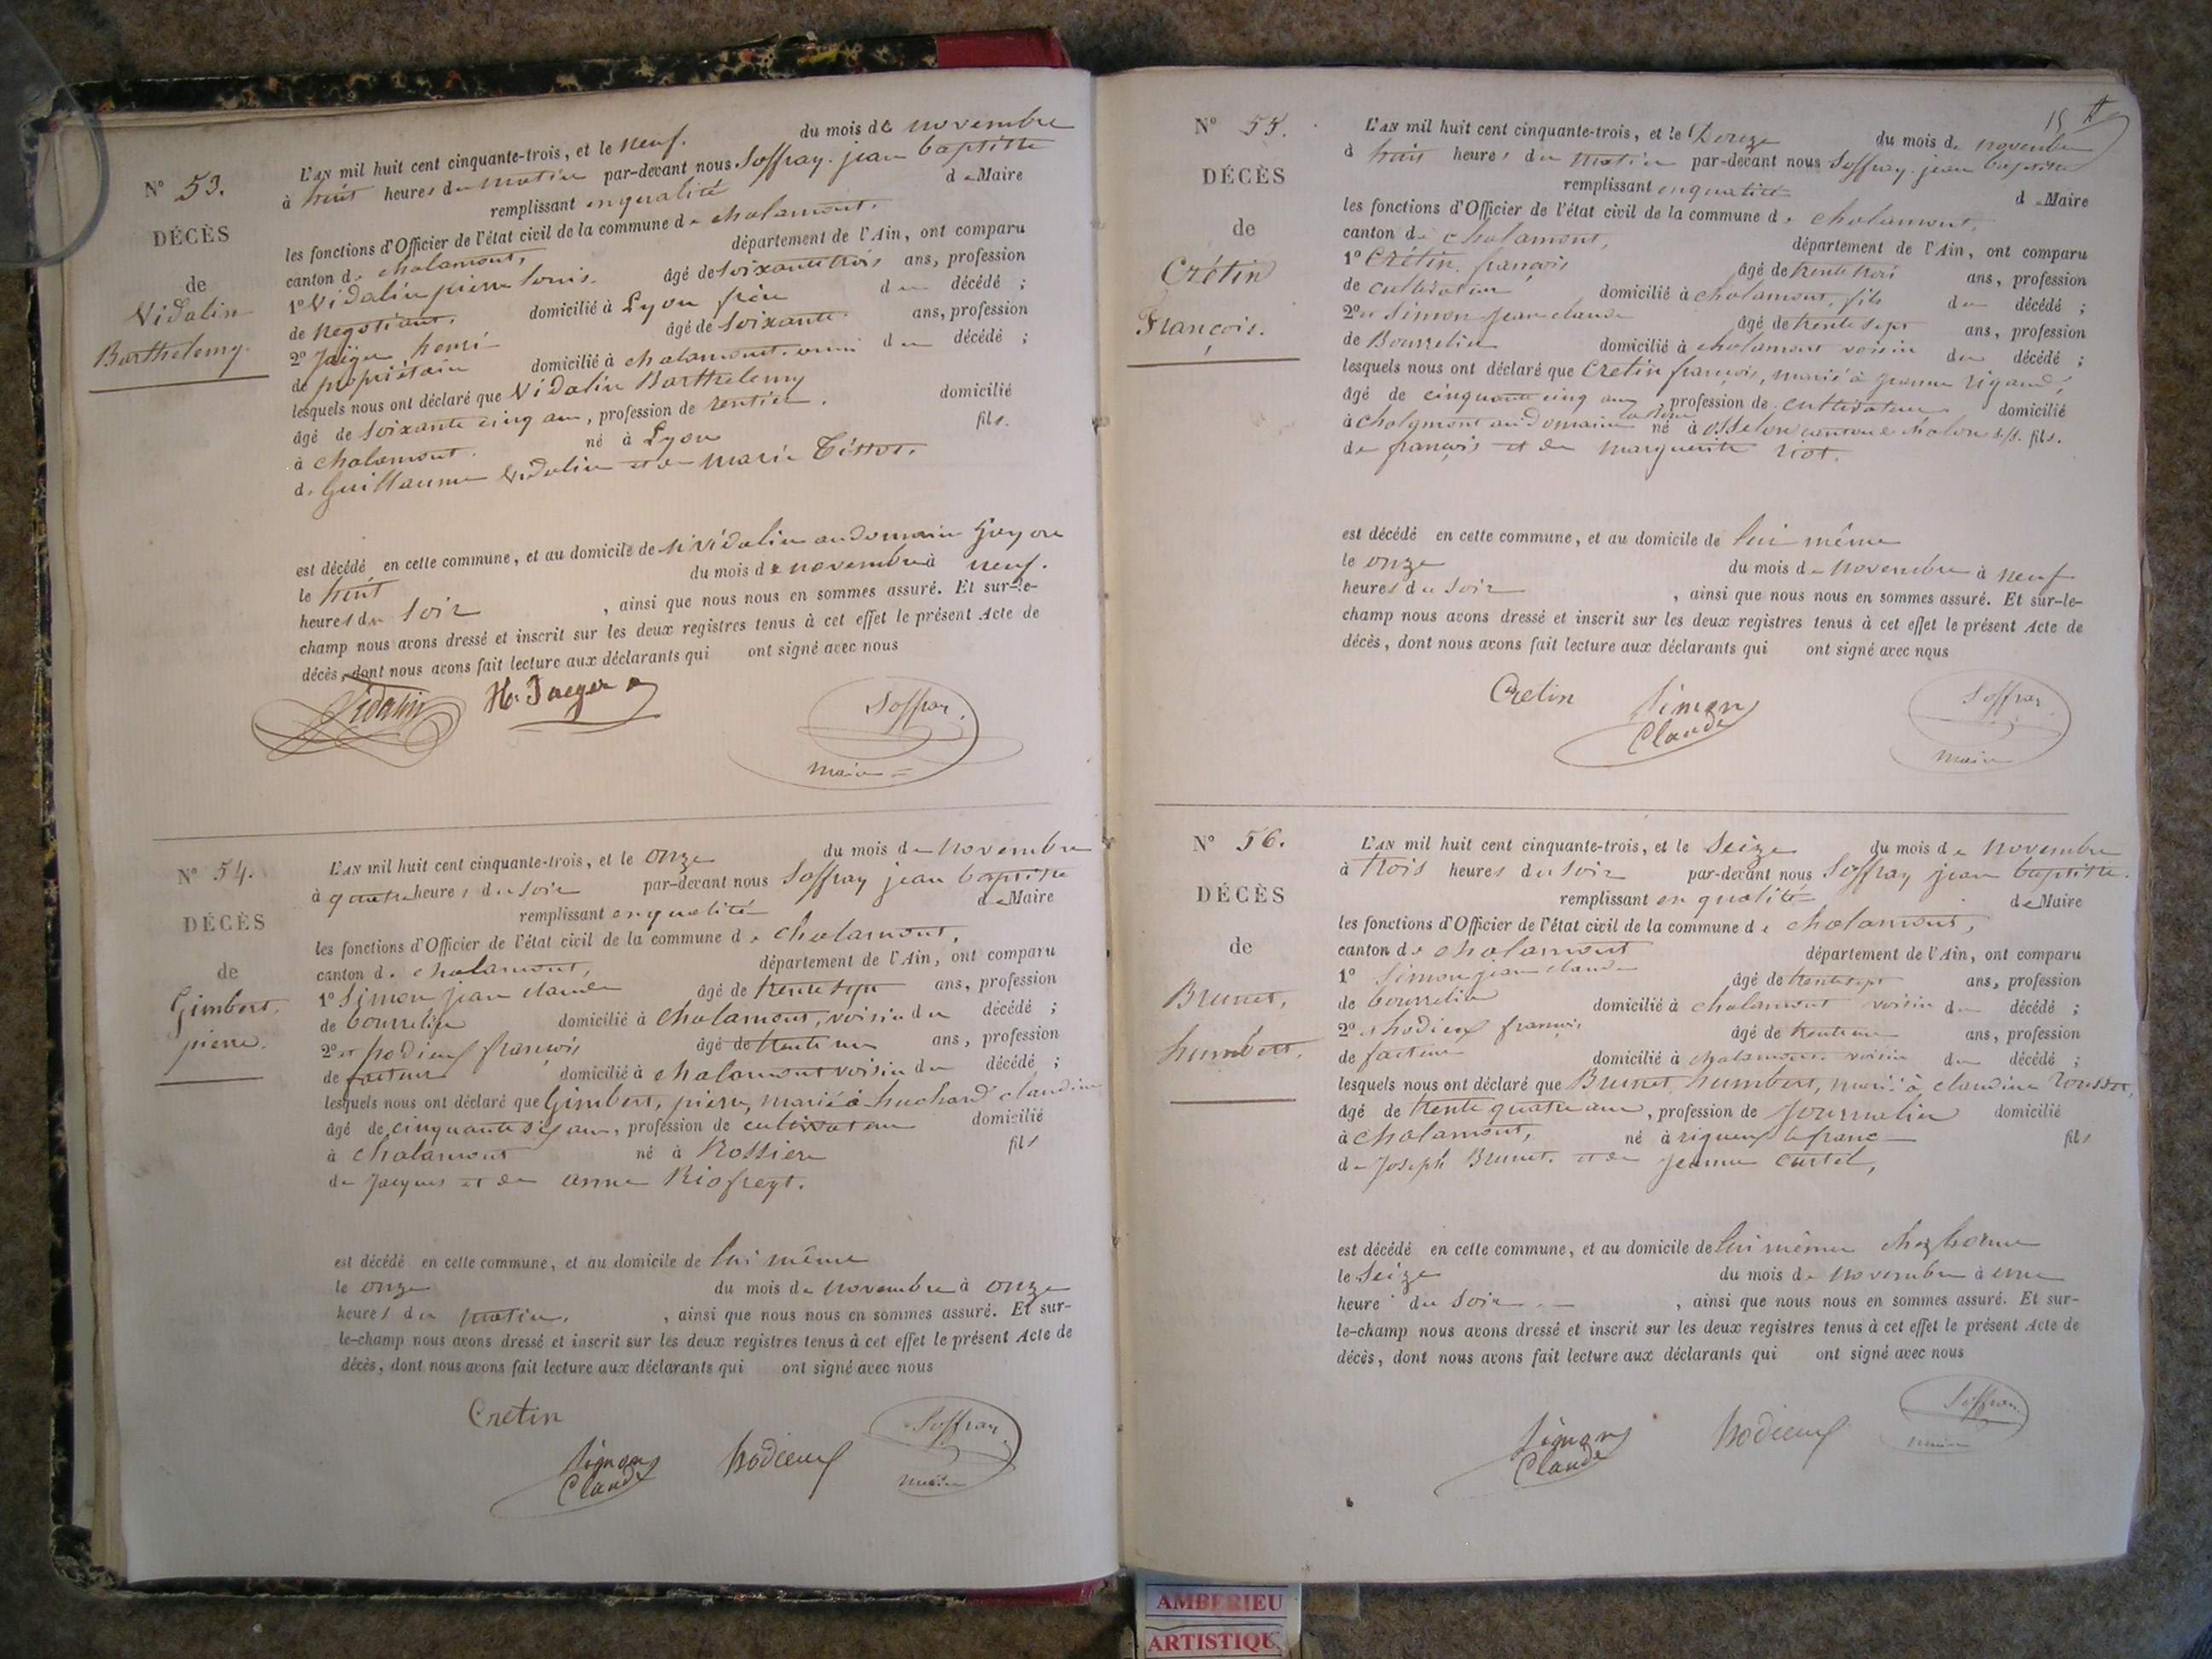 N° 53.
DÉCÈS
de
Vidalin
Barthelemy.
L'AN mil huit cent cinquante-trois, et le neuf. du mois de novembre
à huit heures du matin par-devant nous Soffray jean baptiste
remplissant en qualité de Maire
les fonctions d'Officier de l'état civil de la commune de chalamont.
canton de chalamont, département de l'Ain, ont comparu
1° Vidalin pierre louis. âgé de soixante trois ans, profession
de negotiant. domicilié à Lyon frère du décédé ;
2° Jaëger henri âgé de soixante ans, profession
de propriétaire domicilié à chalamont. ami du décédé ;
lesquels nous ont déclaré que Vidalin Barthelemy
âgé de soixante cinq ans, profession de rentier. domicilié
à chalamont. né à Lyon fils.
de Guillaume Vidalin et de marie Tissot.
est décédé en cette commune, et au domicile de Sr Vidalin au domaine Guyon
le huit du mois de novembre à neuf.
heures du soir , ainsi que nous nous en sommes assuré. Et sur-le-
champ nous avons dressé et inscrit sur les deux registres tenus à cet effet le présent Acte de
décès, dont nous avons fait lecture aux déclarants qui ont signé avec nous
Vidalin H. Jaeger Soffray.
maire
N° 54.
DÉCÈS
de
Gimbert.
pierre.
L'AN mil huit cent cinquante-trois, et le onze du mois de novembre
à quatre heures du soir par-devant nous Soffray jean baptiste
remplissant en qualité de Maire
les fonctions d'Officier de l'état civil de la commune de chalamont,
canton de chalamont, département de l'Ain, ont comparu
1° Simon jean claude âgé de trente sept ans, profession
de bourrelier domicilié à chalamont, voisin du décédé ;
2° et hodieux françois âgé de trente un ans, profession
de facteur domicilié à chalamont voisin du décédé ;
lesquels nous ont déclaré que Gimbert, pierre, marié à huchard claudine
âgé de cinquante six ans, profession de cultivateur domicilié
à chalamont né à Rossiere fils
de Jacques et de anne Riofreyt.
est décédé en cette commune, et au domicile de lui même
le onze du mois de novembre à onze
heures du matin. , ainsi que nous nous en sommes assuré. Et sur-
le-champ nous avons dressé et inscrit sur les deux registres tenus à cet effet le présent Acte de
décès, dont nous avons fait lecture aux déclarants qui ont signé avec nous
Cretin
Simon
Claude hodieux Soffray.
maire
15
N° 55.
DÉCÈS
de
Crétin
François.
L'AN mil huit cent cinquante-trois, et le Douze du mois de novembre
à huit heures du matin par-devant nous Soffray jean baptiste
remplissant en qualité de Maire
les fonctions d'Officier de l'état civil de la commune de chalamont,
canton de chalamont, département de l'Ain, ont comparu
1° Crétin, françois âgé de trente trois ans, profession
de cultivateur domicilié à chalamont, fils du décédé ;
2° et Simon jean claude âgé de trente sept ans, profession
de Bourrelier domicilié à chalamont voisin du décédé ;
lesquels nous ont déclaré que Cretin françois, marié à jeanne rigaud,
âgé de cinquante cinq ans, profession de cultivateur domicilié
à chalamont au domaine né à canton de chalon s/s. fils.
de françois et de marguerite riot.
est décédé en cette commune, et au domicile de lui même
le onze du mois de novembre à neuf
heures du soir , ainsi que nous nous en sommes assuré. Et sur-le-
champ nous avons dressé et inscrit sur les deux registres tenus à cet effet le présent Acte de
décès, dont nous avons fait lecture aux déclarants qui ont signé avec nous
Cretin Simon
Claude Soffray
maire
N° 56.
DÉCÈS
de
Brunet,
humbert.
L'AN mil huit cent cinquante-trois, et le Seize du mois de novembre
à trois heures du soir par-devant nous Soffray jean baptiste.
remplissant en qualité de Maire
les fonctions d'Officier de l'état civil de la commune de chalamont,
canton de chalamont département de l'Ain, ont comparu
1° Simon jean claude âgé de trente sept ans, profession
de bourrelier domicilié à chalamont voisin du décédé ;
2° et hodieux françois âgé de trente un ans, profession
de facteur domicilié à chalamont. voisin du décédé ;
lesquels nous ont déclaré que Brunet, humbert, marié à claudine rousset,
âgé de trente quatre ans, profession de journalier domicilié
à chalamont, né à rigneux le franc fils
de Joseph Brunet. et de jeanne curtet,
est décédé en cette commune, et au domicile de lui même
le Seize du mois de novembre à une
heure du soir , ainsi que nous nous en sommes assuré. Et sur-
le-champ nous avons dressé et inscrit sur les deux registres tenus à cet effet le présent Acte de
décès, dont nous avons fait lecture aux déclarants qui ont signé avec nous
Simon
Claude hodieux Soffray
maire
AMBERIEU
ARTISTIQU